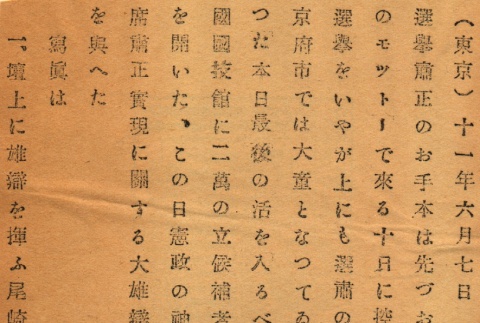 (東京)十一年六月七日
選擧肅正のお手本は先づお
のモットーで來る十日に控
選擧をいやが上にも選肅の
京府市では大童となつてゐ
つた本日最後の活を入るべ
國國技館に二萬の立候補者
を開いた、この日憲政の神
席肅正實現に關する大雄辯
を與へた
寫眞は
一、壇上に雄辯を揮ふ尾崎